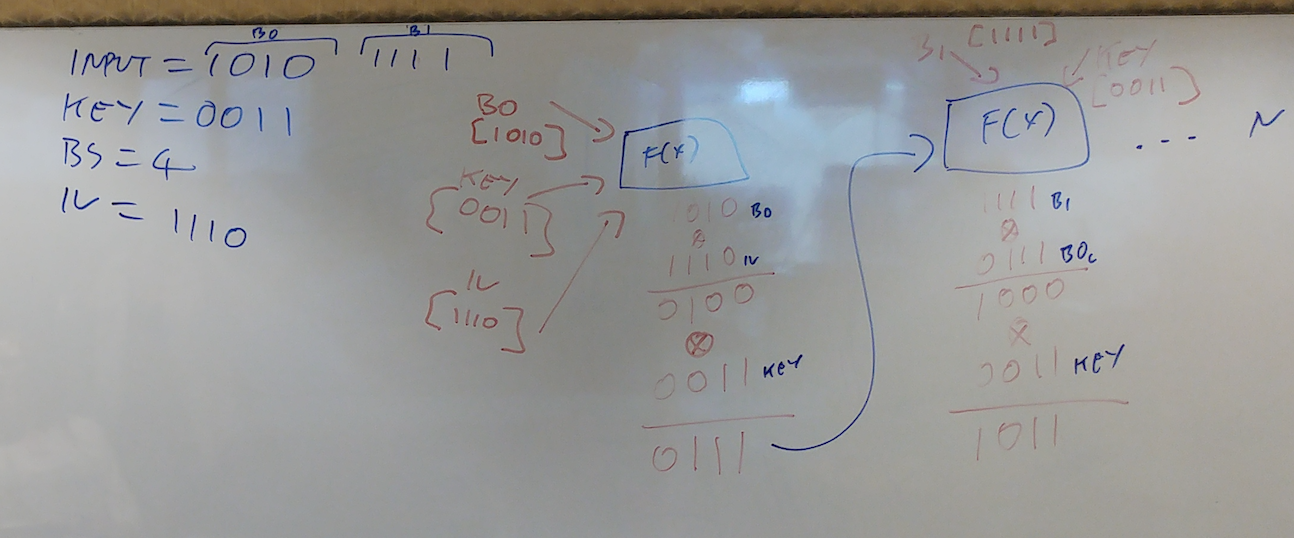 B0 B1
INPUT = 1010 1111
KEY = 0011
BS = 4
IV = 1110
B0
[1010]
KEY
[0011]
IV
[1110]
F(X)
1010 B0
⊗
1110 IV
0100
⊗
0011 KEY
0111
B1 [1111]
KEY
[0011]
F(X) ... N
1111 B1
⊗
0111 B0c
1000
⊗
0011 KEY
1011